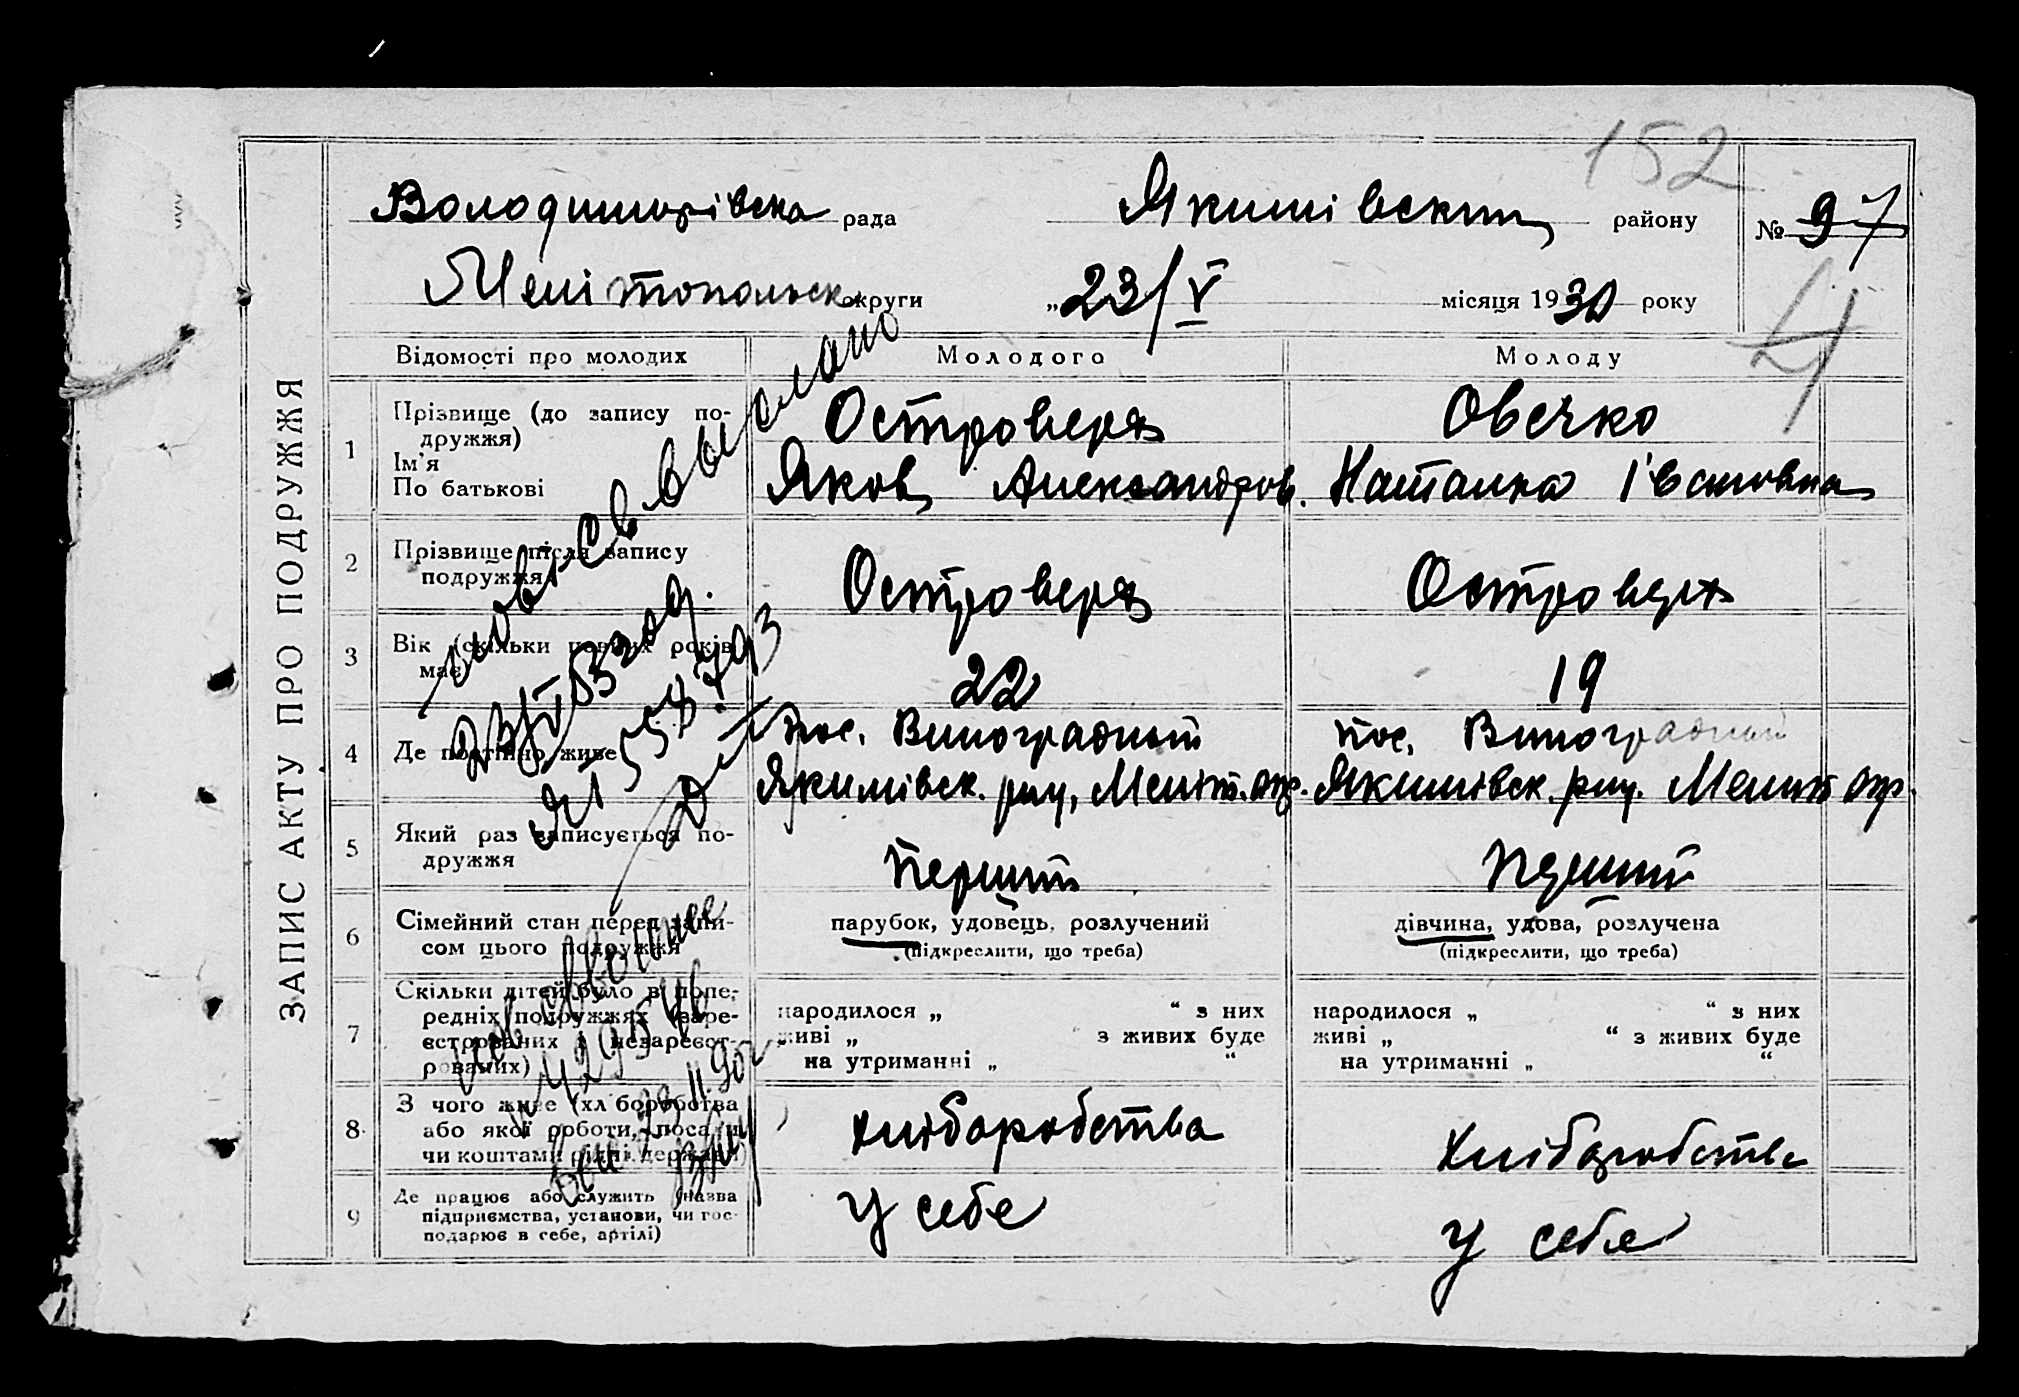 152
Володимирівська рада Якимівський району № 97
Мелітопольск округи „23/V місяця 1930 року
4
ЗАПИС АКТУ ПРО ПОДРУЖЖЯ
Відомості про молодих Молодого Молоду
1 Прізвище (до запису по-
дружжя) Островерх Овечко
Ім'я
По батькові Яков Александров. Наталка Івановна
2 Прізвище після запису
подружжя Островерх Островерх
3 Вік (скільки повних років
має) 22 19
4 Де постійно живе пос. Виноградний пос. Виноградний
Якимівск. рну, Меліт. окр. Якимівск. рну. Меліт окр.
5 Який раз записується по-
дружжя перший перший
6 Сімейний стан перед запи-
сом цього подружжя
парубок, удовець, розлучений дівчина, удова, розлучена
(підкреслити, що треба) (підкреслити, що треба)
7 Скільки дітей було в попе-
редніх подружжях (заре-
єстрованих і незареєст-
рованих)
народилося „ “ з них народилося „ “ з них
живі „ “ з живих буде живі „ “ з живих буде
на утриманні „ “ на утриманні „ “
8 З чого живе (хліборобства
або якої роботи, посади
чи коштами рідні, держави
хліборобства хліборобства
9 Де працює або служить (назва
підприємства, установи, чи гос-
подарює в себе, артілі)
у себе у себе
повт. св выслано
ЯП 558793